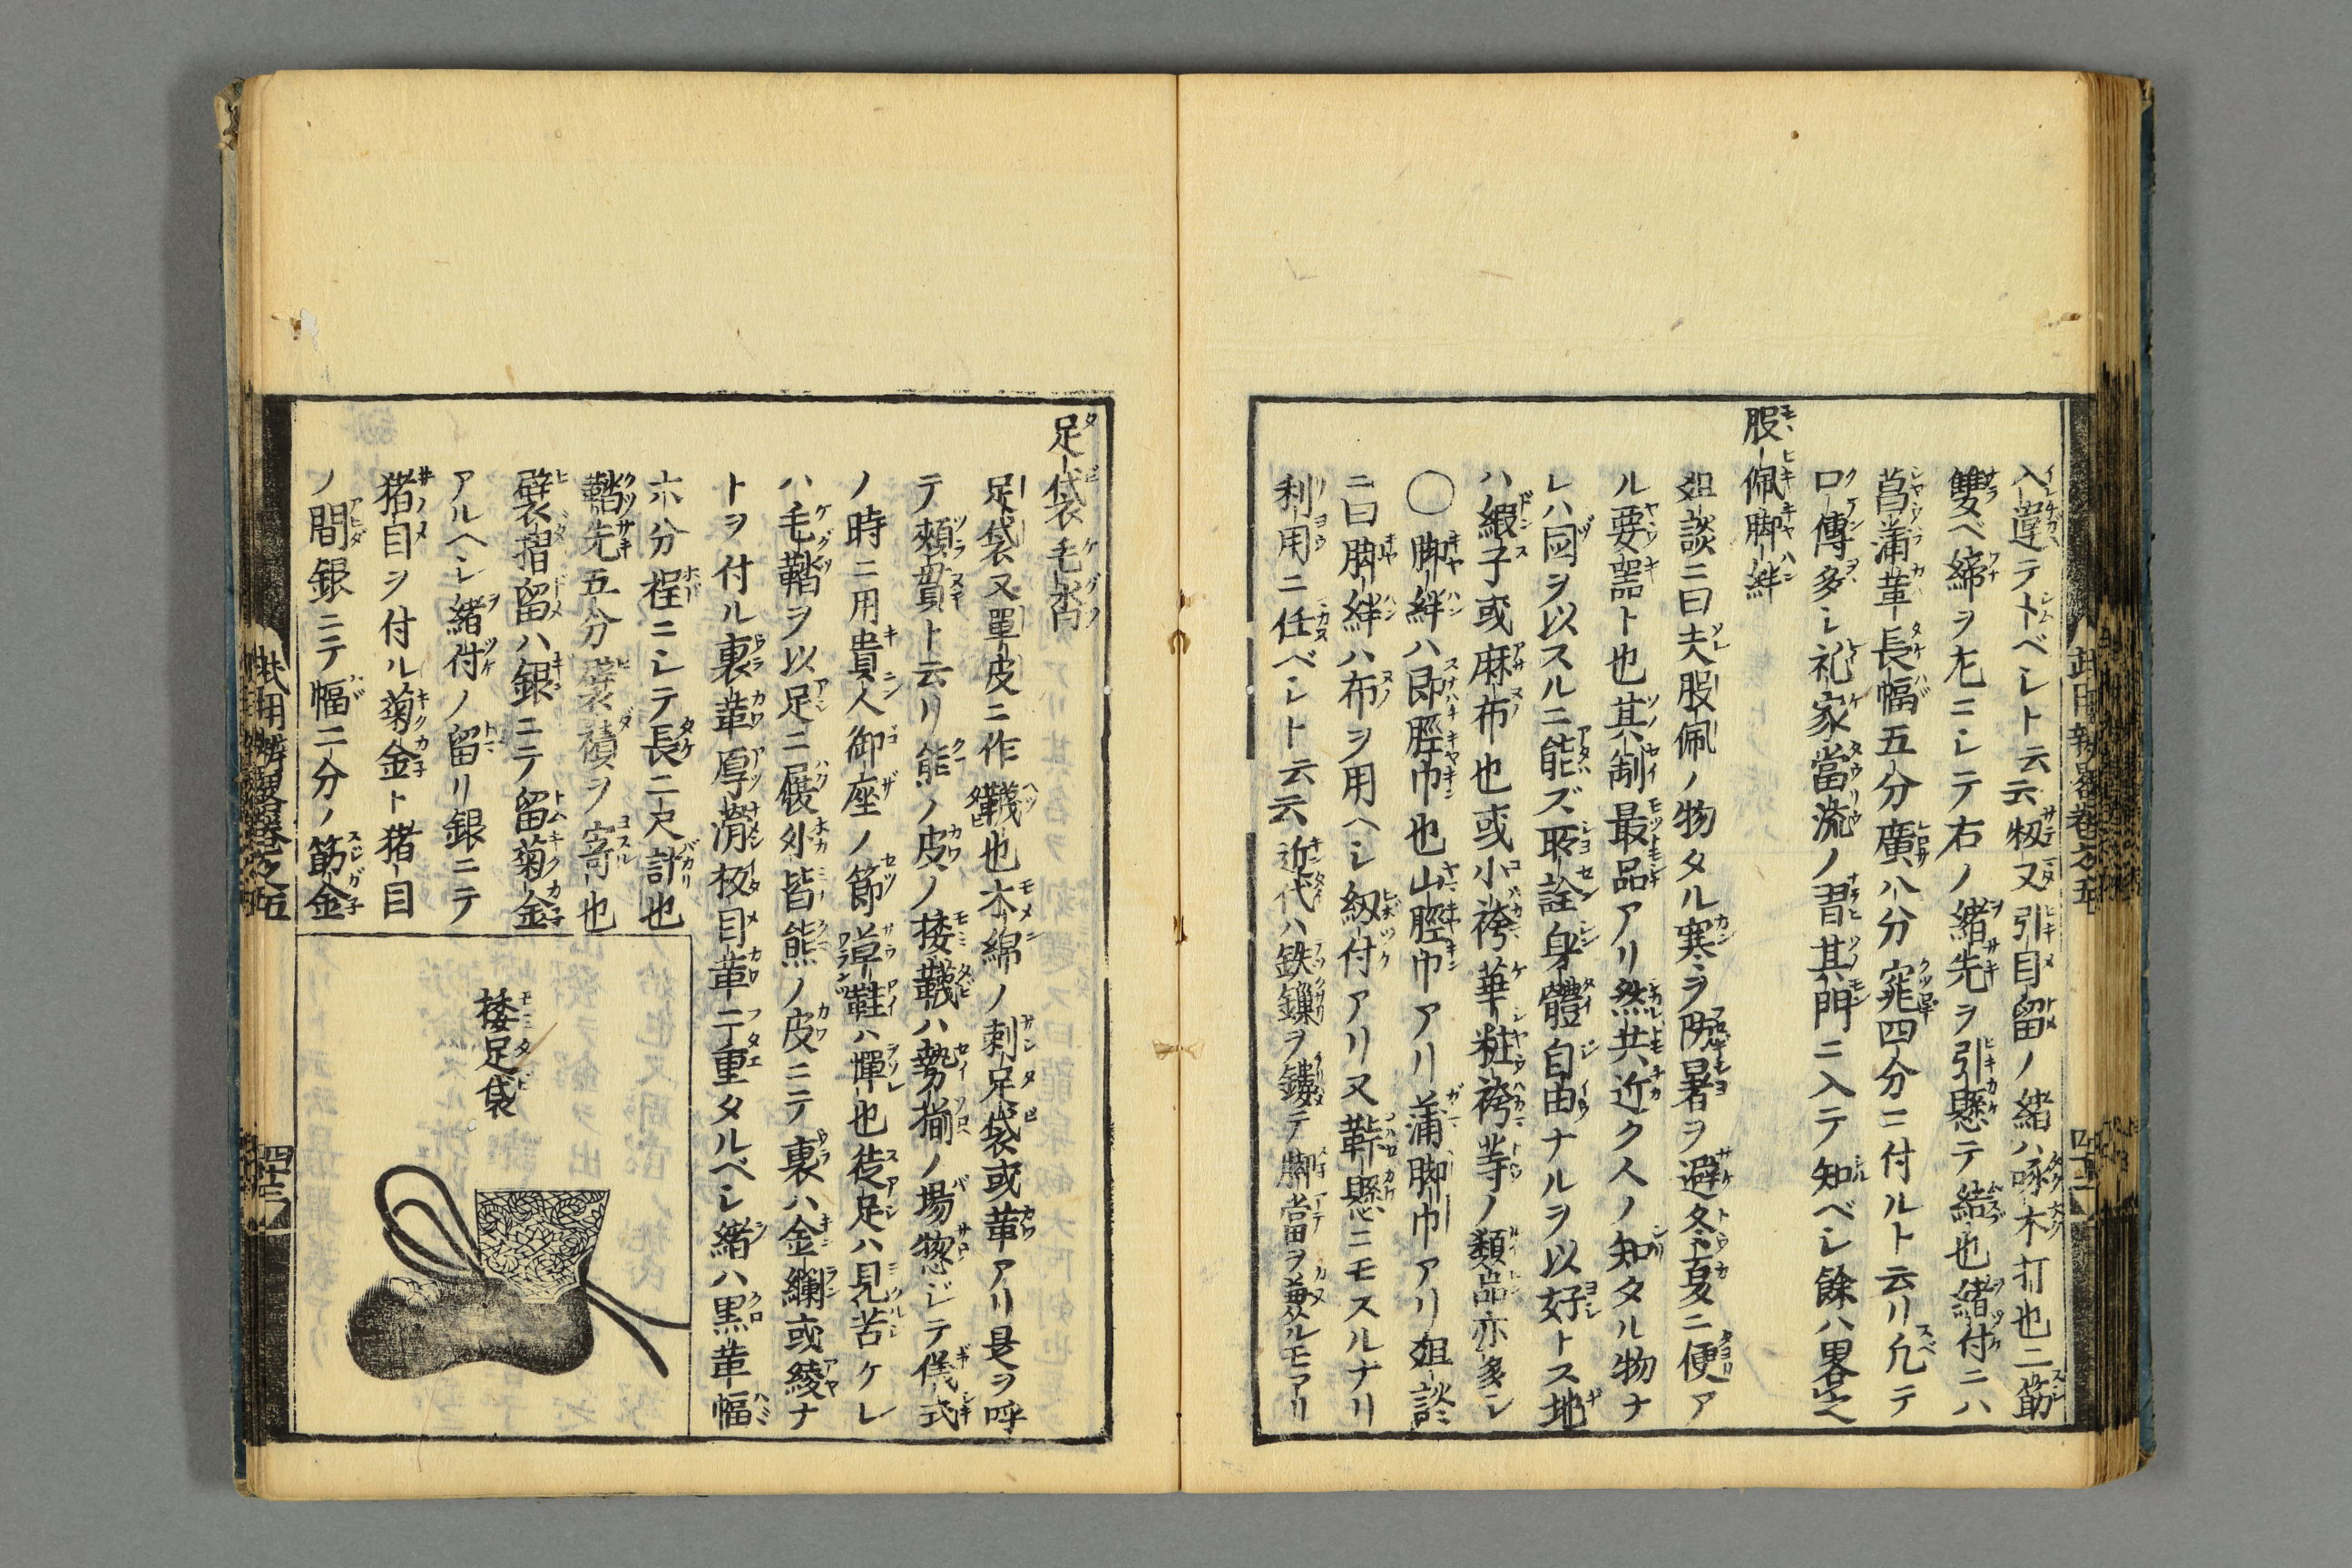 入違テトベシト云云扨又引目留ノ緒ハ啄木打也二筋
雙べ締ヲ尤ニシテ右ノ緒先ヲ引懸テ結也緒付ニハ
菖蒲革長幅五分廣八分窕四分ニ付ルト云リ凡テ
口傳多シ礼家當流ノ習其門ニ入テ知ベシ餘ハ畧之
股佩脚絆
爼談ニ曰夫股佩ノ物タル寒ヲ防暑ヲ避冬夏ニ便ア
ル要噐ト也其制最品アリ然共近ク人ノ知タル物ナ
レハ図ヲ以スルニ能ズ所詮身體自由ナルヲ以好トス地
ハ緞子或麻布也或小袴華粧袴等ノ類品亦多シ
〇脚絆ハ即脛巾也山脛巾アリ蒲脚巾アリ爼談
ニ曰脚絆ハ布ヲ用ヘシ紐付アリ又鞢懸ニモスルナリ
利用ニ任ベシト云云近代ハ鉄鏁ヲ鏤テ脚當ヲ兼タルモアリ
足袋毛沓
足袋又單皮ニ作韈也木綿ノ刺足袋或革アリ是ヲ呼
テ頰貫ト云リ熊ノ皮ノ捼韈ハ勢揃ノ場惣ジテ儀式
ノ時ニ用貴人御座ノ節草鞋ハ憚也徒足ハ見苦ケレ
ハ毛鞜ヲ以足ニ屐外皆熊ノ皮ニテ裏ハ金襴或綾ナ
トヲ付ル裏革厚滑板目革二重タルベシ緒ハ黒革幅
六分程ニシテ長二尺計也
鞜先五分襞積ヲ寄也
襞摺留ハ銀ニテ留菊金
アルヘシ緒付ノ留リ銀ニテ
猪目ヲ付ル菊金ト猪目
ノ間銀ニテ幅二分ノ筋金
捼足袋
武用辨畧巻之五
四十三